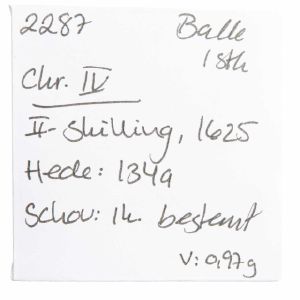 2287 Balle
1 stk
Chr. IV
II-skilling, 1625
Hede: 134a
Schou: ik. bestemt
V: 0,97g